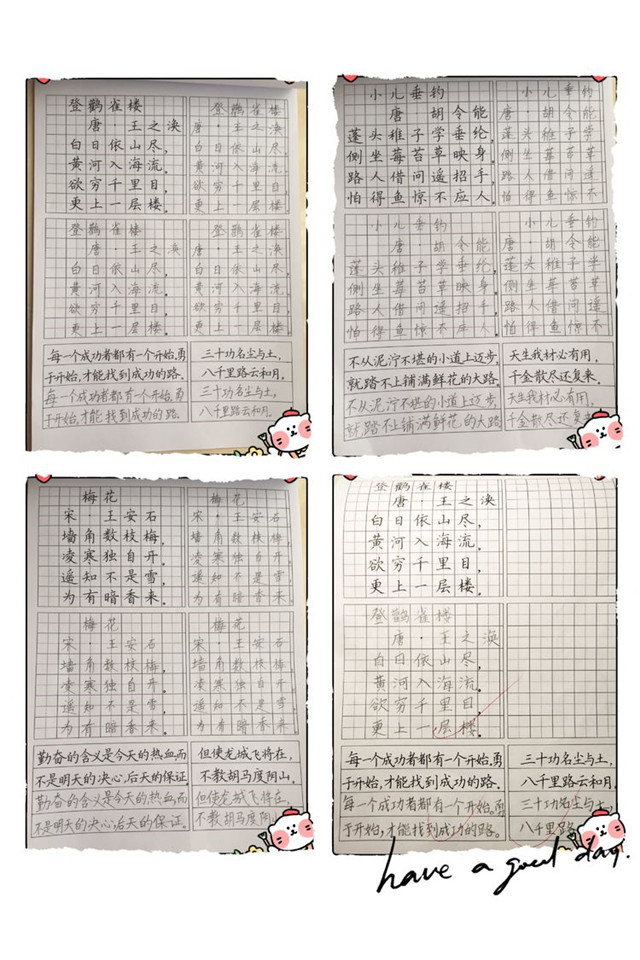 登鹳雀楼
唐·王之涣
白日依山尽，
黄河入海流。
欲穷千里目，
更上一层楼。
登鹳雀楼
唐·王之涣
白日依山尽，
黄河入海流，
欲穷千里目，
更上一层楼。
登鹳雀楼
唐·王之涣
白日依山尽，
黄河入海流，
欲穷千里目，
更上一层楼。
登鹳雀楼
唐·王之涣
白日依山尽，
黄河入海流
欲穷千里目，
更上一层楼。
每一个成功者都有一个开始,勇
于开始,才能找到成功的路。
每一个成功者都有一个开始,勇
于开始,才能找到成功的路。
三十功名尘与土，
八千里路云和月。
三十功名尘与土，
八千里路云和月。
小儿垂钓
唐·胡令能
蓬头稚子学垂纶，
侧坐莓苔草映身。
路人借问遥招手，
怕得鱼惊不应人。
小儿垂钓
唐·胡令能
蓬头稚子学
侧坐莓苔草
路人借问遥
怕得鱼惊不
小儿垂钓
唐·胡令能
蓬头稚子学垂纶，
侧坐莓苔草映身。
路人借问遥招手，
怕得鱼惊不应人。
小儿垂钓
唐·胡令能
蓬头稚子
侧坐莓苔草
路人借问遥
怕得鱼惊不
不从泥泞不堪的小道上迈步,
就踏不上铺满鲜花的大路。
不从泥泞不堪的小道上迈步,
就踏不上铺满鲜花的大路
天生我材必有用，
千金散尽还复来。
天生我材必有用，
千金散尽还复
梅花
宋·王安石
墙角数枝梅，
凌寒独自开
遥知不是雪，
为有暗香来。
梅花
宋·王安石
墙角数枝梅，
凌寒独自开
遥知不是雪，
为有暗香来。
梅花
宋·王安石
墙角数枝梅，
凌寒独自开
遥知不是雪，
为有暗香来。
梅花
宋·王安石
墙角数枝梅，
凌寒独自开
遥知不是雪
为有暗香来。
勤奋的含义是今天的热血,而
不是明天的决心,后天的保证
勤奋的含义是今天的热血,而
不是明天的决心,后天的保证。
但使龙城飞将在，
不教胡马度阴山。
但使龙城飞将在，
不教胡马度阴山
登鹳雀楼
唐·王之涣
白日依山尽，
黄河入海流。
欲穷千里目，
更上一层楼。
登鹳雀楼
唐·王之涣
白日依山尽，
黄河入海流。
欲穷千里目，
更上一层楼。
每一个成功者都有一个开始,勇
于开始,才能找到成功的路。
每一个成功者都有一个开始,勇
于开始,才能找到成功的路。
三十功名尘与土，
八千里路云和月。
三十功名尘与土，
八千里路
have a good day.